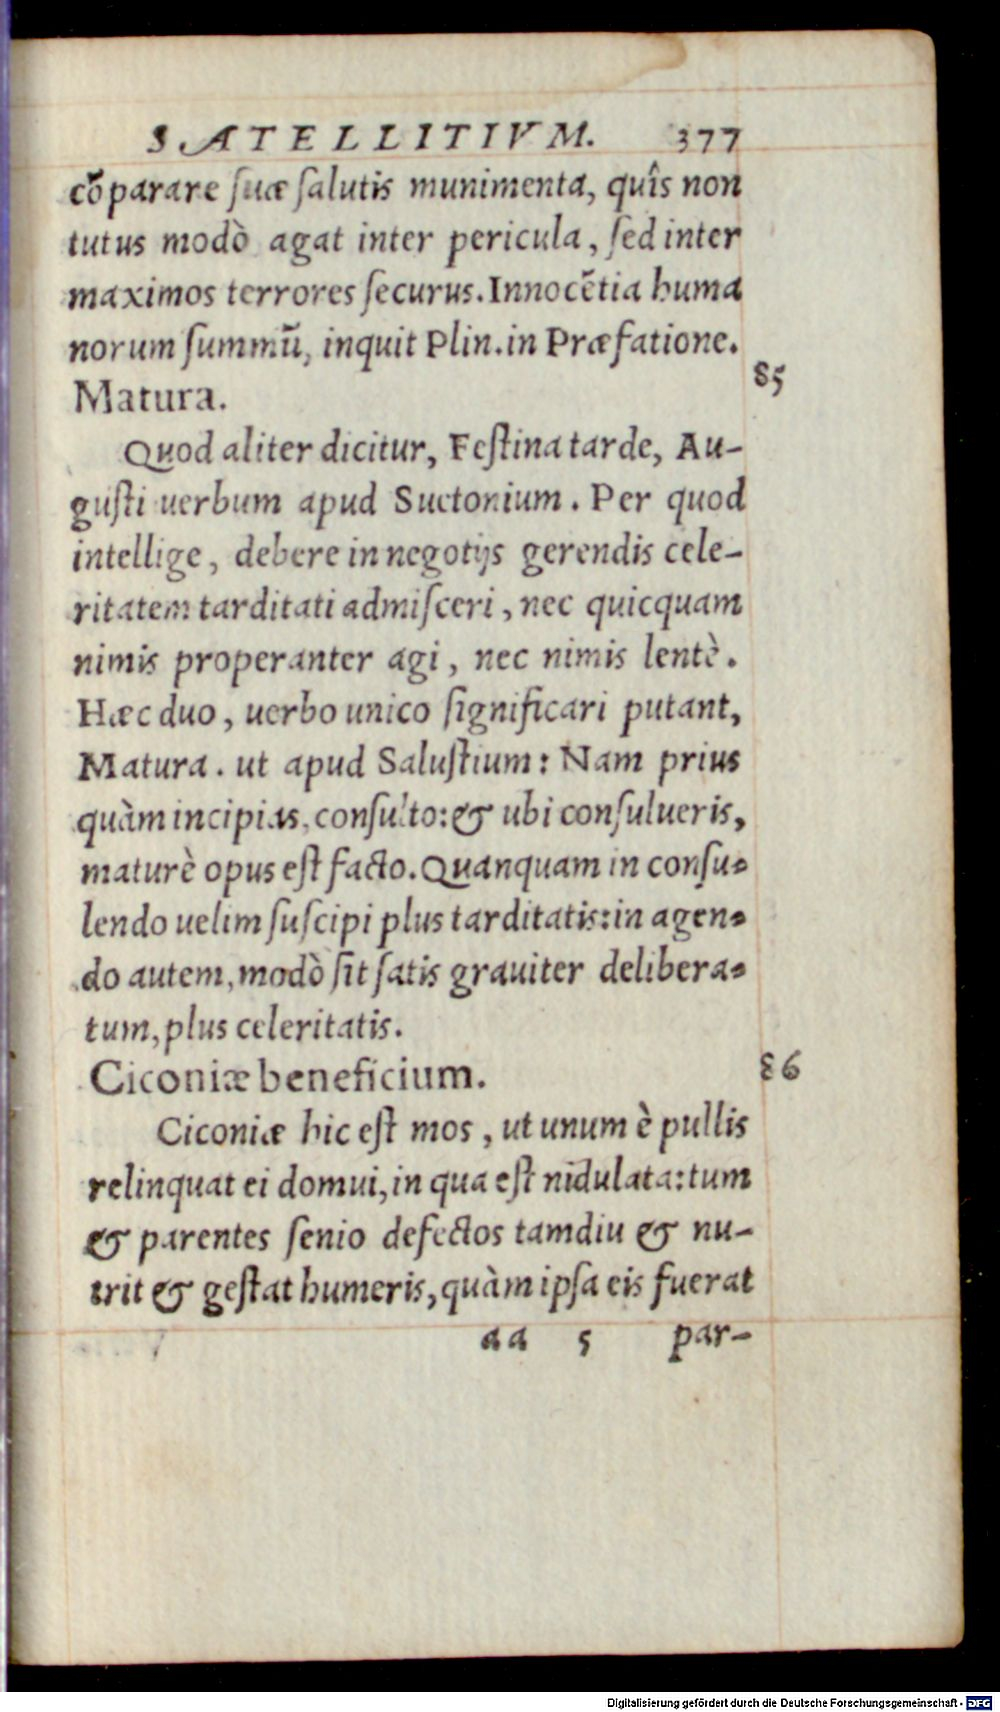 SATELLITIVM. 377
cõparare suæ salutis munimenta, quîs non
tutus modò agat inter pericula, sed inter
maximos terrores securus. Innocẽtia huma
norum summũ, inquit Plin. in Præfatione.
Matura. 85
Quod aliter dicitur, Festina tarde, Au-
gusti uerbum apud Suetonium. Per quod
intellige, debere in negotijs gerendis cele-
ritatem tarditati admisceri, nec quicquam
nimis properanter agi, nec nimis lentè.
Hæc duo, uerbo unico significari putant,
Matura. ut apud Salustium: Nam prius
quàm incipias, consulto: & ubi consulueris,
maturè opus est facto. Quanquam in consu-
lendo uelim suscipi plus tarditatis: in agen-
do autem, modò sit satis grauiter delibera-
tum, plus celeritatis.
Ciconiæ beneficium. 86
Ciconiæ hic est mos, ut unum è pullis
relinquat ei domui, in qua est nidulata: tum
& parentes senio defectos tamdiu & nu-
trit & gestat humeris, quàm ipsa eis fuerat
aa 5 par-
Digitalisierung gefördert durch die Deutsche Forschungsgemeinschaft - DFG